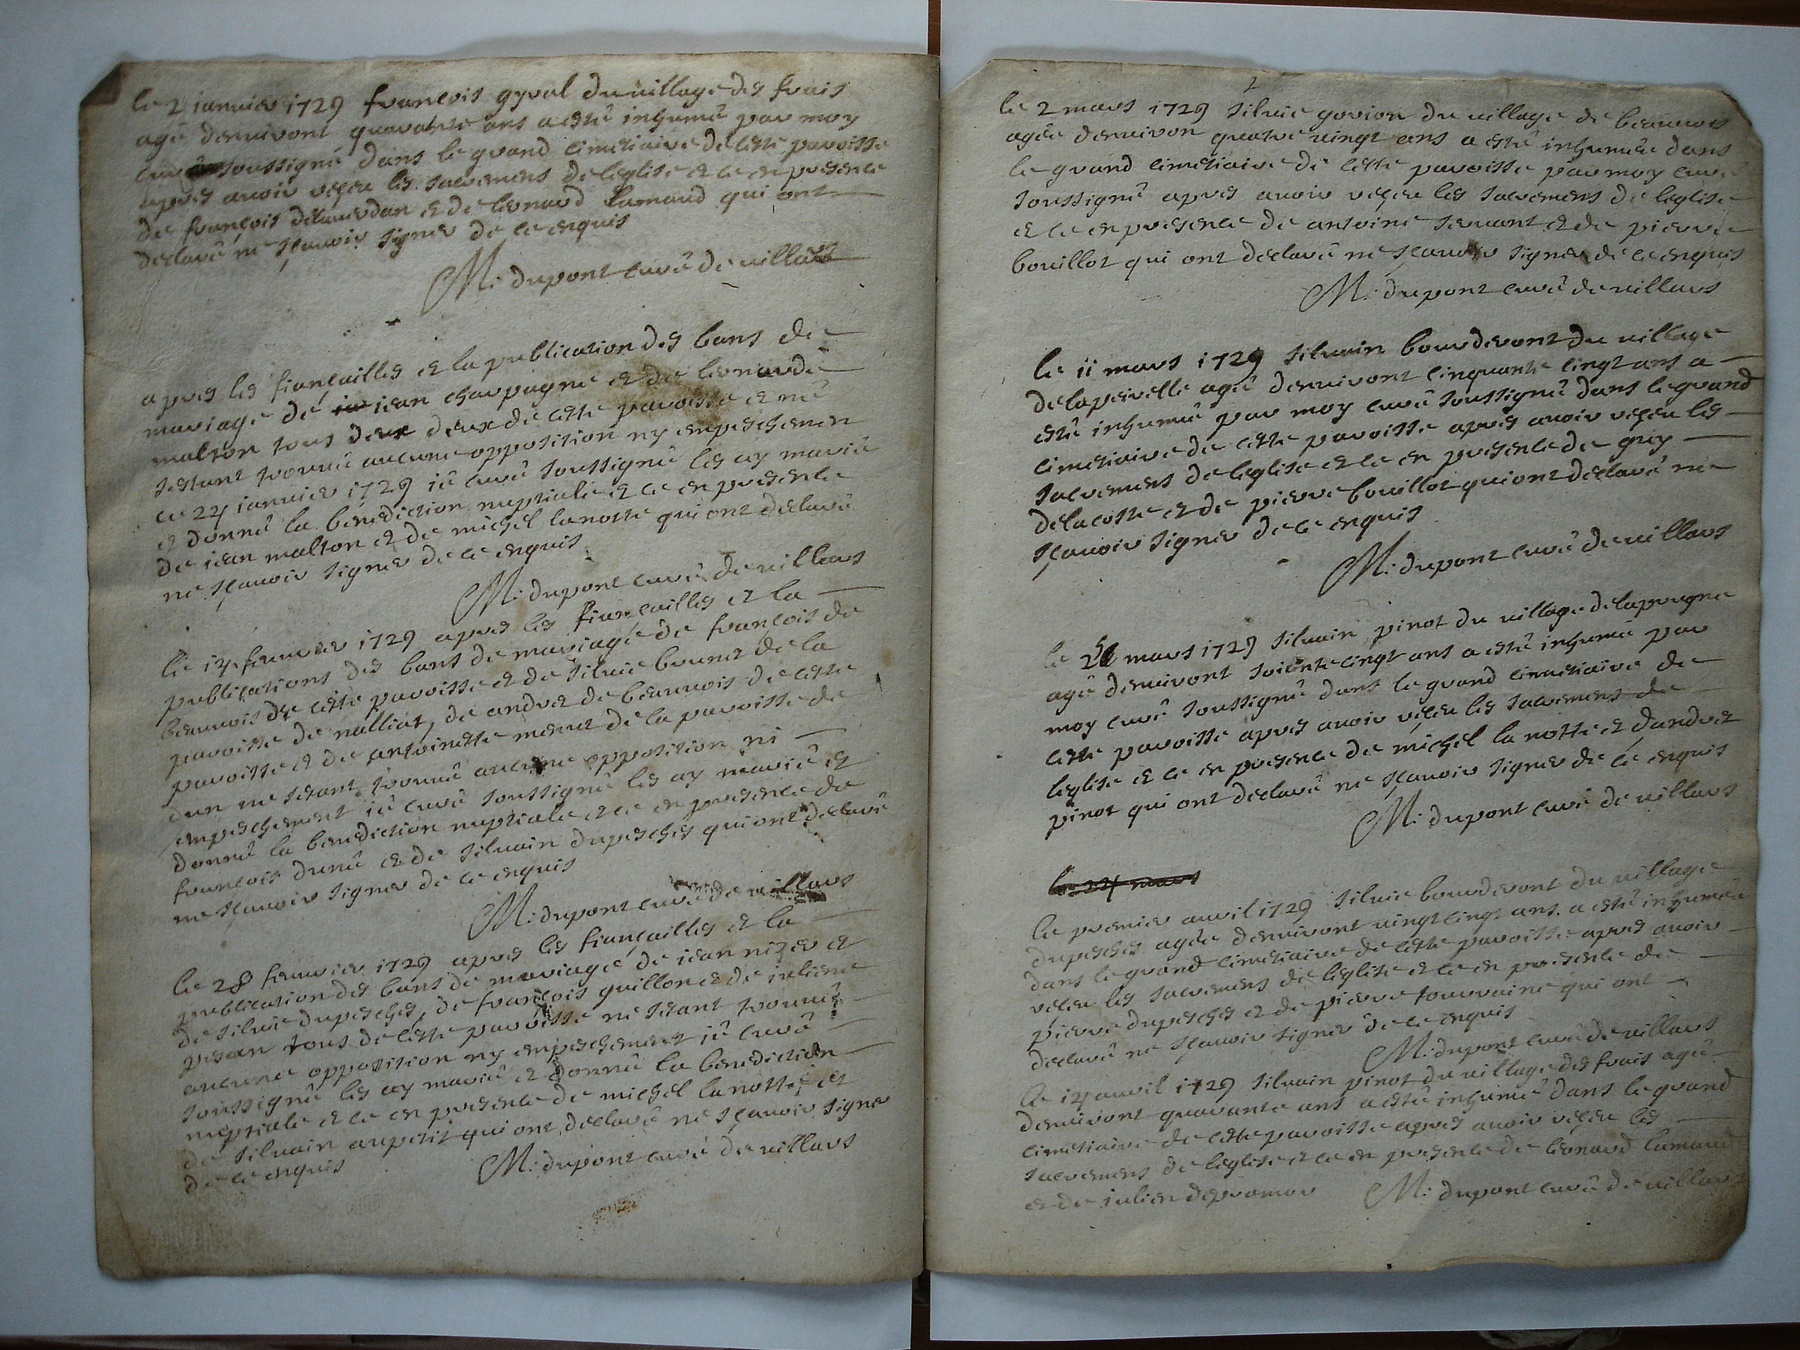 le 2 ianuier 1729 francois gyral du uillage des frais
agé denuiront quarante ans a esté inhumé par moy
curé soussigné dans le grand cimetiaire de cette paroisse
apres auoir reçeu les sacremens de leglise et ce en presence
de françois delauerdan et de leonard lamaud qui ont
declaré ne sçauoir signer de ce enquis
M: dupont curé de uillars
apres les fiançailles et la publication des bans de
mariage de iean chapagne et de leonarde
malton tous deux de cette paroisse et ne
sestant trouué aucune opposition ny empeschemen
ce 24 ianuier 1729 ié curé soussigné les ay marié
et donné la bénédiction nuptiale et ce en presence
de iean malton et de michel lanotte qui ont declaré
ne sçauoir signer de ce enquis
M: dupont curé de uillars
le 14 feurier 1729 apres les fiançailles et la
publications des bans de mariage de françois de
beauuois de cette paroisse et de siluie bounet de la
paroisse de nalliat, de andret de beauuois de cette
paroisse et de antoinette menet de la paroisse de
dun ne sétant trouué aucune opposition ni
empeschement ié curé soussigné les ay marié et
donné la benediction nuptiale et ce en presence de
francois duné et de siluain dupesches qui ont declaré
ne sçauoir signer de ce enquis
M: dupont curé de uillars
le 28 feurier 1729 apres les fiancailles et la
publication des bans de mariage de iean nizer et
de siluie dupesches, de françois guillon et de iulienne
pesan tous de cette paroisse ne sétant trouué
aucune opposition ny empeschement ié curé
soussigné les ay marié et donné la benediction
nuptiale et ce en presence de michel lanotte et
de siluain aupetit qui ont declaré ne sçauoir signer
de ce enquis
M: dupont curé de uillars
le 2 mars 1729 siluie gorion du uillage de beauuois
agée denuiron quatre uingt ans a esté inhumée dans
le grand cimetiaire de cette paroisse par moy curé
soussigné apres auoir reçeu les sacremens de leglise
et ce en presence de antoine seruant et de pierre
bouillot qui ont declaré ne sçauoir signer de ce enquis
M: dupont curé de uillars
le ii mars 1729 siluain bourderont du uillage
delaperelle agé denuiront cinquante cingt ans a
esté inhumé par moy curé soussigné dans le grand
cimetiaire de cette paroisse apres auoir reçeu les
sacremens de leglise et ce en presence de guy
delacoste et de pierre bouillot qui ont declaré ne
sçauoir signer de ce enquis
M: dupont curé de uillars
le mars 1729 siluain pinot du uillage delaprugne
agé denuiront soiente cingt ans a esté inhumé par
moy curé soussigné dans le grand cimetiaire de
cette paroisse apres auoir reçeu les sacremens de
leglise et ce en presence de michel la notte et dandret
pinot qui ont declaré ne sçauoir signer de ce enquis
M: dupont curé de uillars
le 24 mars
le premier auril 1729 siluie bourderont du uillage
dupesches agée denuiront uingt cingt ans a esté inhumée
dans le grand cimetiaire de cette paroisse apres auoir
reçeu les sacremens de leglise et ce en presence de
pierre dupesches et de pierre touuraine qui ont
declaré ne sçauoir signer de ce enquis
M: dupont curé de uillars
le 14 auril 1729 siluain pinot du uillage des frais agé
denuiront quarante ans a esté inhumé dans le grand
cimetiaire de cette paroisse apres auoir reçeu les
sacremens de leglise et ce en presence de léonard lamaud
et de iulien depramor M: dupont curé de uillars